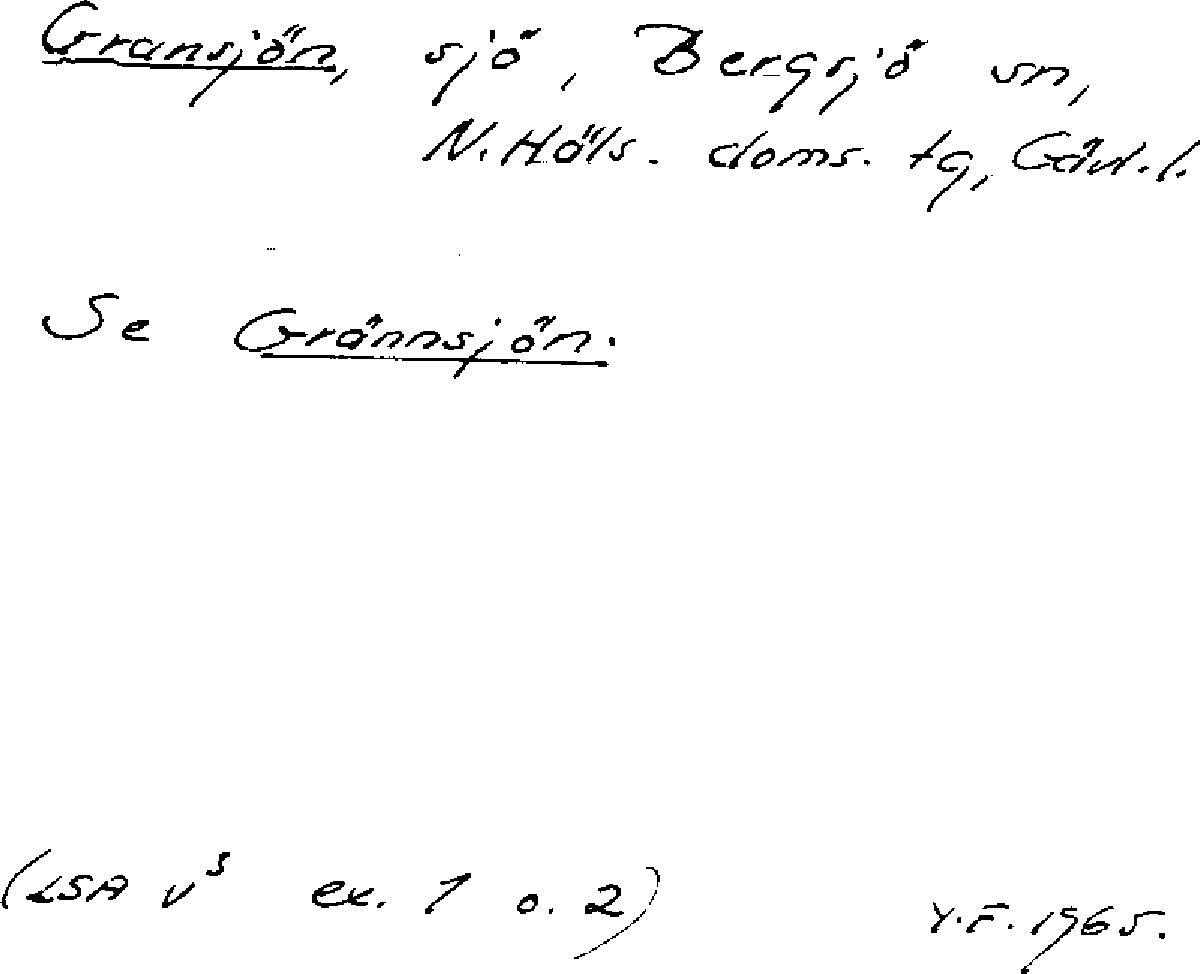 Gransjön, sjö, Bergsjö sn,
N. Häls. doms. tg, Gävl. l.
Se Grännsjön.
(LSA v⁵ ex. 1 o. 2)
Y.F. 1965.